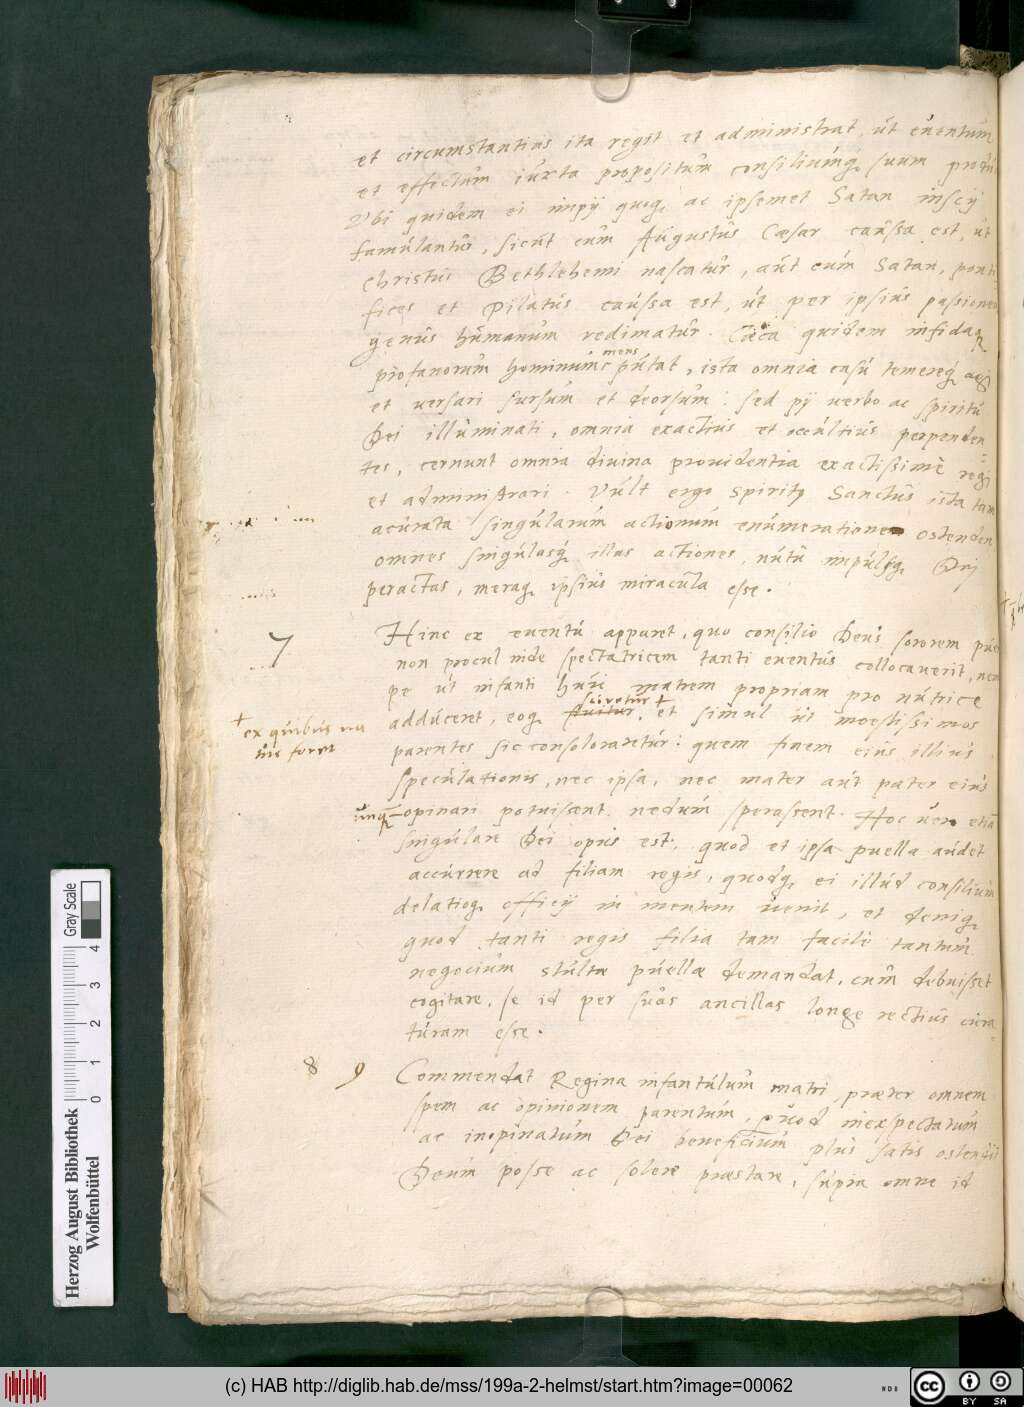 et circumstantias ita regit et administrat, ut euentum
et effectum iuxta propositum consiliumq; suum
Vbi quidem ei impij quoq; ac ipsemet Satan inscij
famulantur, sicut cum Augustus Cæsar caussa est, ut
Christus Bethlehemi nascatur, aut cum Satan, ponti
fices et Pilatus caussa est, ut per ipsius passionem
genus humanum redimatur. Cæca quidem infida
mens
profanorum hominum putat, ista omnia casu temereq; agi
et uersari sursum et deorsum: sed pij uerbo ac spiritu
Dei illuminati, omnia exactius et occultius perpenden
tes, cernunt omnia diuina prouidentia exactissimè regi
et administrari. Vult ergo Spiritus Sanctus ista tam
acurata singularum actionum enumeratione ostendere
omnes singulasq; illas actiones, nutu impulsuq; Dei
peractas, meraq; ipsius miracula esse.
7
Hinc ex euentu apparet, quo consilio Deus sororem pueri
non procul inde spectatricem tanti euentus collocauerit, nem
pe ut infanti huic matrem propriam pro nutrice
seruetur +
adduceret, eoq; fruitur, et simul ut moestissimos
+
ex quibus na
tus foret
parentes sic consolaretur: quem finem eius illius
speculationis, nec ipsa, nec mater aut pater eius
unq;
opinari potuissent nedum sperassent. Hoc uero etiã
singulare Dei opus est, quod et ipsa puella audet
accurrere ad filiam regis, quodq; ei illud consilium
delatioq; officij in mentem uenit, et deniq;
quod tanti regis filia tam facilè tantum
negocium stultæ puellæ demandat, cum debuisset
cogitare, se id per suas ancillas longe rectius cura
turam esse.
8 9 Commendat Regina infantulum matri, præter omnem
spem ac opinionem parentum, quod inexspectatum
ac inopinatum Dei beneficium plus satis ostendit
Deum posse ac solere præstare, supra omne id
Herzog August Bibliothek
Wolfenbüttel
0 1 2 3 4
Gray Scale
(c) HAB http://diglib.hab.de/mss/199a-2-helmst/start.htm?image=00062
cc BY SA